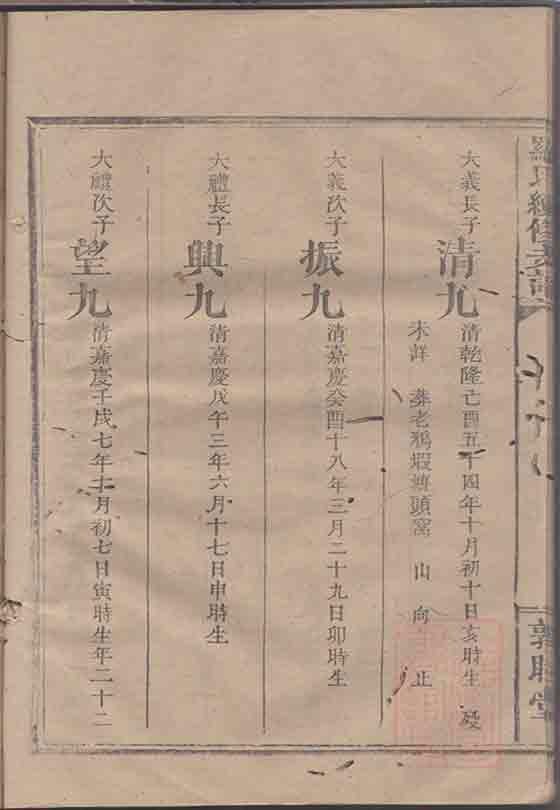 大義長子
清九
清乾隆己酉五十四年十月初十日亥時生 歿
未詳 葬老鴉蝦塘頭窩 山 向 止
大義次子
振九
清嘉慶癸酉十八年三月二十九日卯時生
大禮長子
興九
清嘉慶戊午三年六月十七日申時生
大禮次子
望九
清嘉慶壬戌七年十月初七日寅時生年二十二
氏續修支譜
敦睦堂